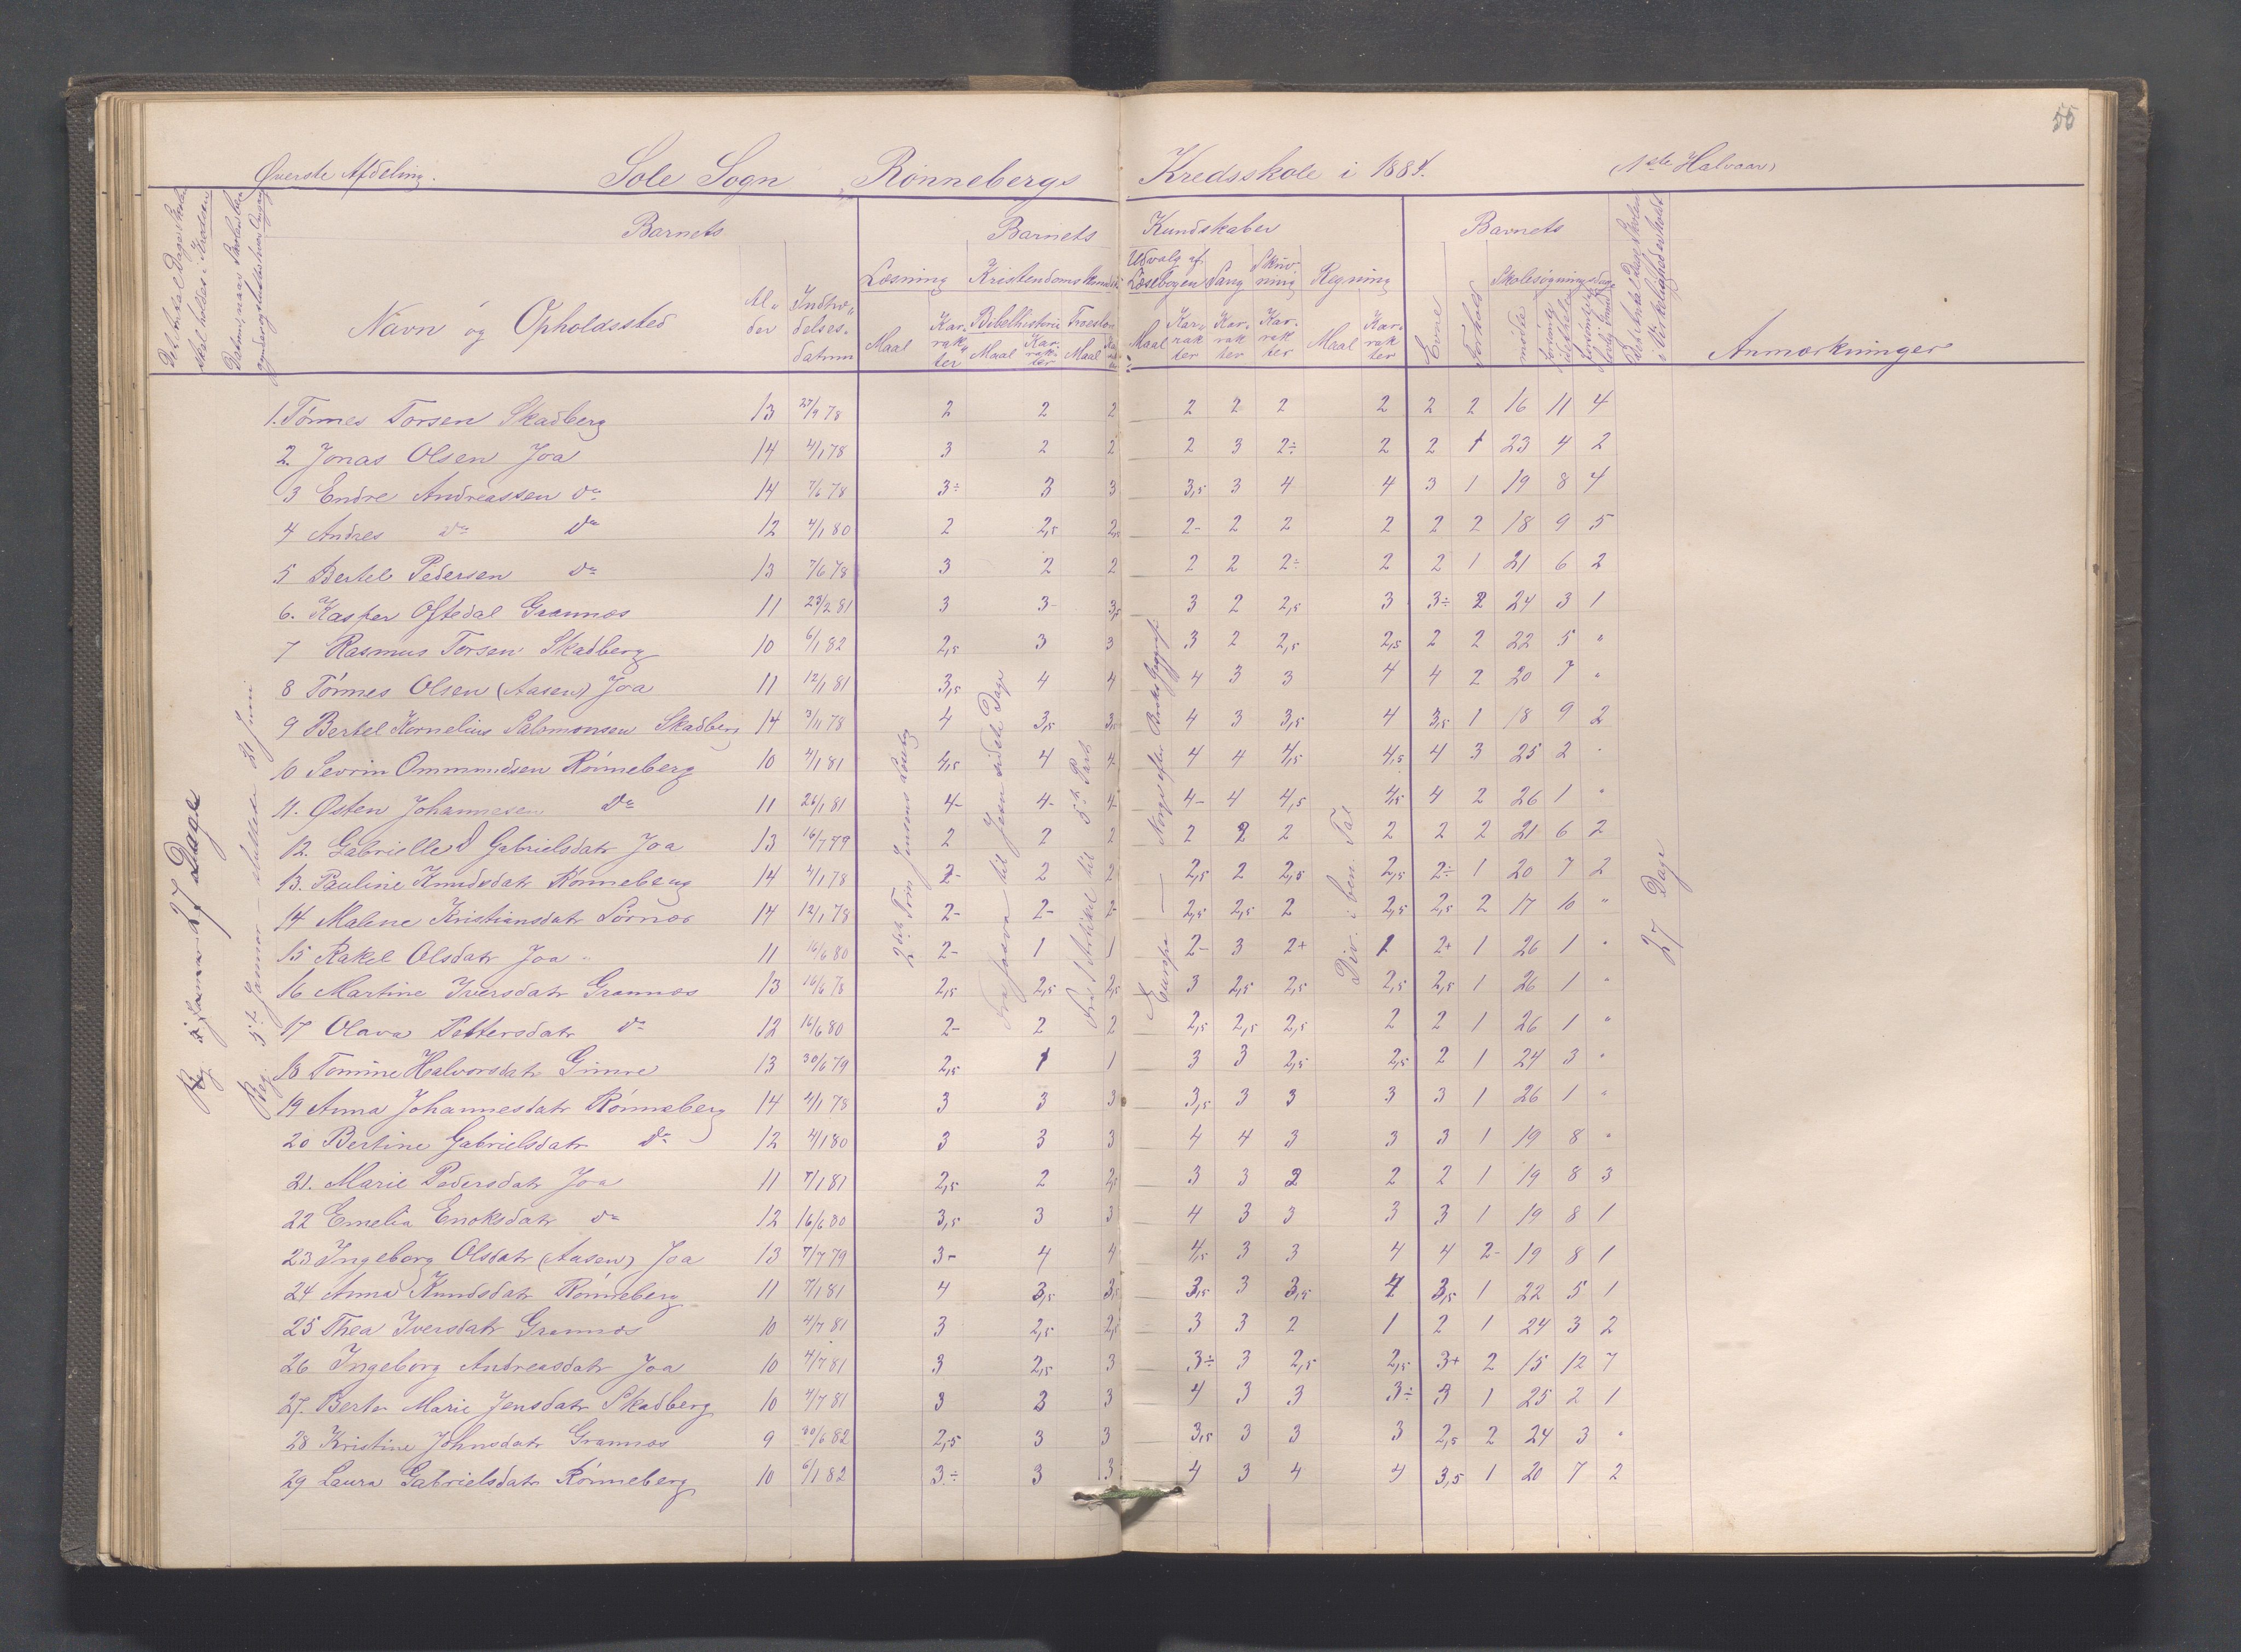 55
Øverste Afdeling. Sole Sogn Rønnebergs Kredsskole i 1884. 1ste Halvaar
Barnets Barnets Kundskaber Barnets
Læsning Kristendomskundskab Udvalg af Læsebogen Sang Skrivning Regning Evne Forhold Skolesøgningsdage
Navn og Opholdssted Alder Indtrædelsesdatum Maal Karakter Bibelhistorie Maal Karakter Troeslære Maal Maal Karakter Karakter Karakter Maal Karakter mødte Anmærkninger
Det Antal Dage Skolen skal holdes i Kredsen
1. Tønnes Torsen Skadberg 13 27/9 78 2 2 2 2 2 2 2 2 2 16 11 4
2. Jonas Olsen Joa 14 4/1 78 3 2 2 2 3 2÷ 2 2 1 23 4 2
3 Endre Andreassen do 14 7/6 78 3÷ 3 3 3,5 3 4 4 3 1 19 8 4
4 Andres do do 12 4/1 80 2 2,5 2,5 2- 2 2 2 2 2 18 9 5
5 Bertel Pedersen do 13 7/6 78 3 2 2 2 2 2÷ 2 2 1 21 6 2
6. Kasper Oftedal Grannes 11 23/2 81 3 3- 3,5 3 2 2,5 3 3÷ 2 24 3 1
7 Rasmus Torsen Skadberg 10 6/1 82 2,5 3 3 3 2 2,5 2,5 2 2 22 5 "
8 Tønnes Olsen (Aasen) Joa 11 12/1 81 3,5 4 4 4 3 3 4 4 2 20 7 "
9 Bertel Kornelius Salomonsen Skadberg 14 3/11 78 4 3,5 3,5 4 3 3,5 4 3,5 1 18 9 2
10 Sevrin Ommundsen Rønneberg 10 4/1 81 4,5 4 4 4 4 4,5 4,5 4 3 25 2 "
11. Østen Johannesen do 11 26/1 81 4- 4- 4- 4- 4 4,5 4,5 4 2 26 1 "
12. Gabrielle Gabrielsdatr Joa 13 16/7 79 2 2 2 2 2 2 2 2 2 21 6 2
13. Pauline Knudsdatr Rønneberg 14 4/1 78 2- 2 2 2,5 2 2,5 2,5 2÷ 1 20 7 2
14 Malene Kristiansdatr Sørnes 14 12/1 78 2- 2- 2- 2,5 2,5 2 2,5 2,5 2 17 10 "
15 Rakel Olsdatr Joa 11 16/6 80 2- 1 1 2- 3 2+ 1 2+ 1 26 1 "
16 Martine Iversdatr Grannes 13 16/6 78 2,5 2,5 2,5 3 2,5 2,5 2,5 2,5 1 26 1 "
17 Olava Pettersdatr do 12 16/6 80 2- 2 2 2,5 2,5 2,5 2 2 1 26 1 "
18 Tomine Halvorsdatr Gimre 13 30/6 79 2,5 1 1 3 3 2,5 2,5 2 1 24 3 "
19 Anna Johannesdatr Rønneberg 14 4/1 78 3 3 3 3,5 3 3 3 3 1 26 1 "
20 Bertine Gabrielsdatr do 12 4/1 80 3 3 3 4 4 3 3 3 1 19 8 "
21. Marie Pedersdatr Joa 11 7/1 81 2,5 2 2,5 3 3 2 2 2 1 19 8 3
22 Emelia Enoksdatr do 12 16/6 80 3,5 3 3 4 3 3 3 3 1 19 8 1
23 Ingeborg Olsdatr (Aasen) Joa 13 7/7 79 3- 4 4 4,5 3 3 4 4 2- 19 8 1
24 Anna Knudsdatr Rønneberg 11 7/1 81 4 3,5 3,5 3,5 3 3,5 4 3,5 1 22 5 1
25 Thea Iversdatr Grannes 10 4/7 81 3 2,5 2,5 3 3 2 1 2 1 24 3 2
26 Ingeborg Andreasdatr Joa 10 4/7 81 3 2,5 3 3÷ 3 2,5 2,5 3+ 2 15 12 7
27. Berte Marie Jensdatr Skadberg 10 4/7 81 3 3 3 4 3 3 3÷ 3 1 25 2 1
28 Kristine Johnsdatr Grannes 9 30/6 82 2,5 3 3 3,5 3 3 3 2,5 2 24 3 "
29 Laura Gabrielsdatr Rønneberg 10 6/1 82 3÷ 3 3 4 3 4 4 3,5 1 20 7 2
27 Dage
Beg. 5te Januar – sluttede 21 Juni
2det Trin Jensens Læsebog
til Jesu sidste Dage
Artikel til 5te Part
Europa — Norge efter
Div. i ben. Tal
27 Dage